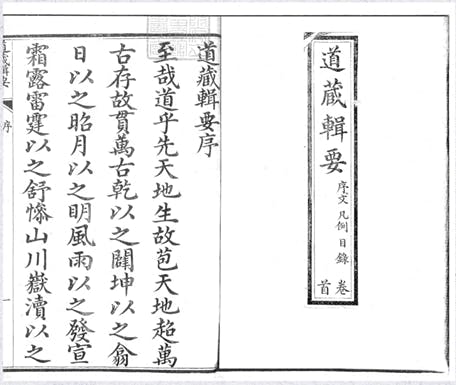 道藏輯要
序文 凡例 目錄
卷首
道藏輯要序
至哉道乎先天地生故苞天地超萬
古存故貫萬古乾以之闢坤以之翕
日以之昭月以之明風雨以之發宣
霜露雷霆以之舒慘山川嶽瀆以之
道藏輯要 序 一